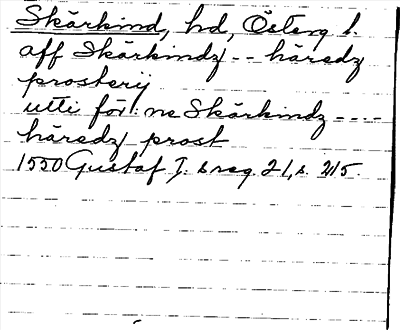 Skärkind, hd, Österg l.
aff Skärkindz -- häredz
prosterij
utti för:ne Skärkindz ----
häredz prost
1550 Gustaf I:s reg. 21, s. 215.